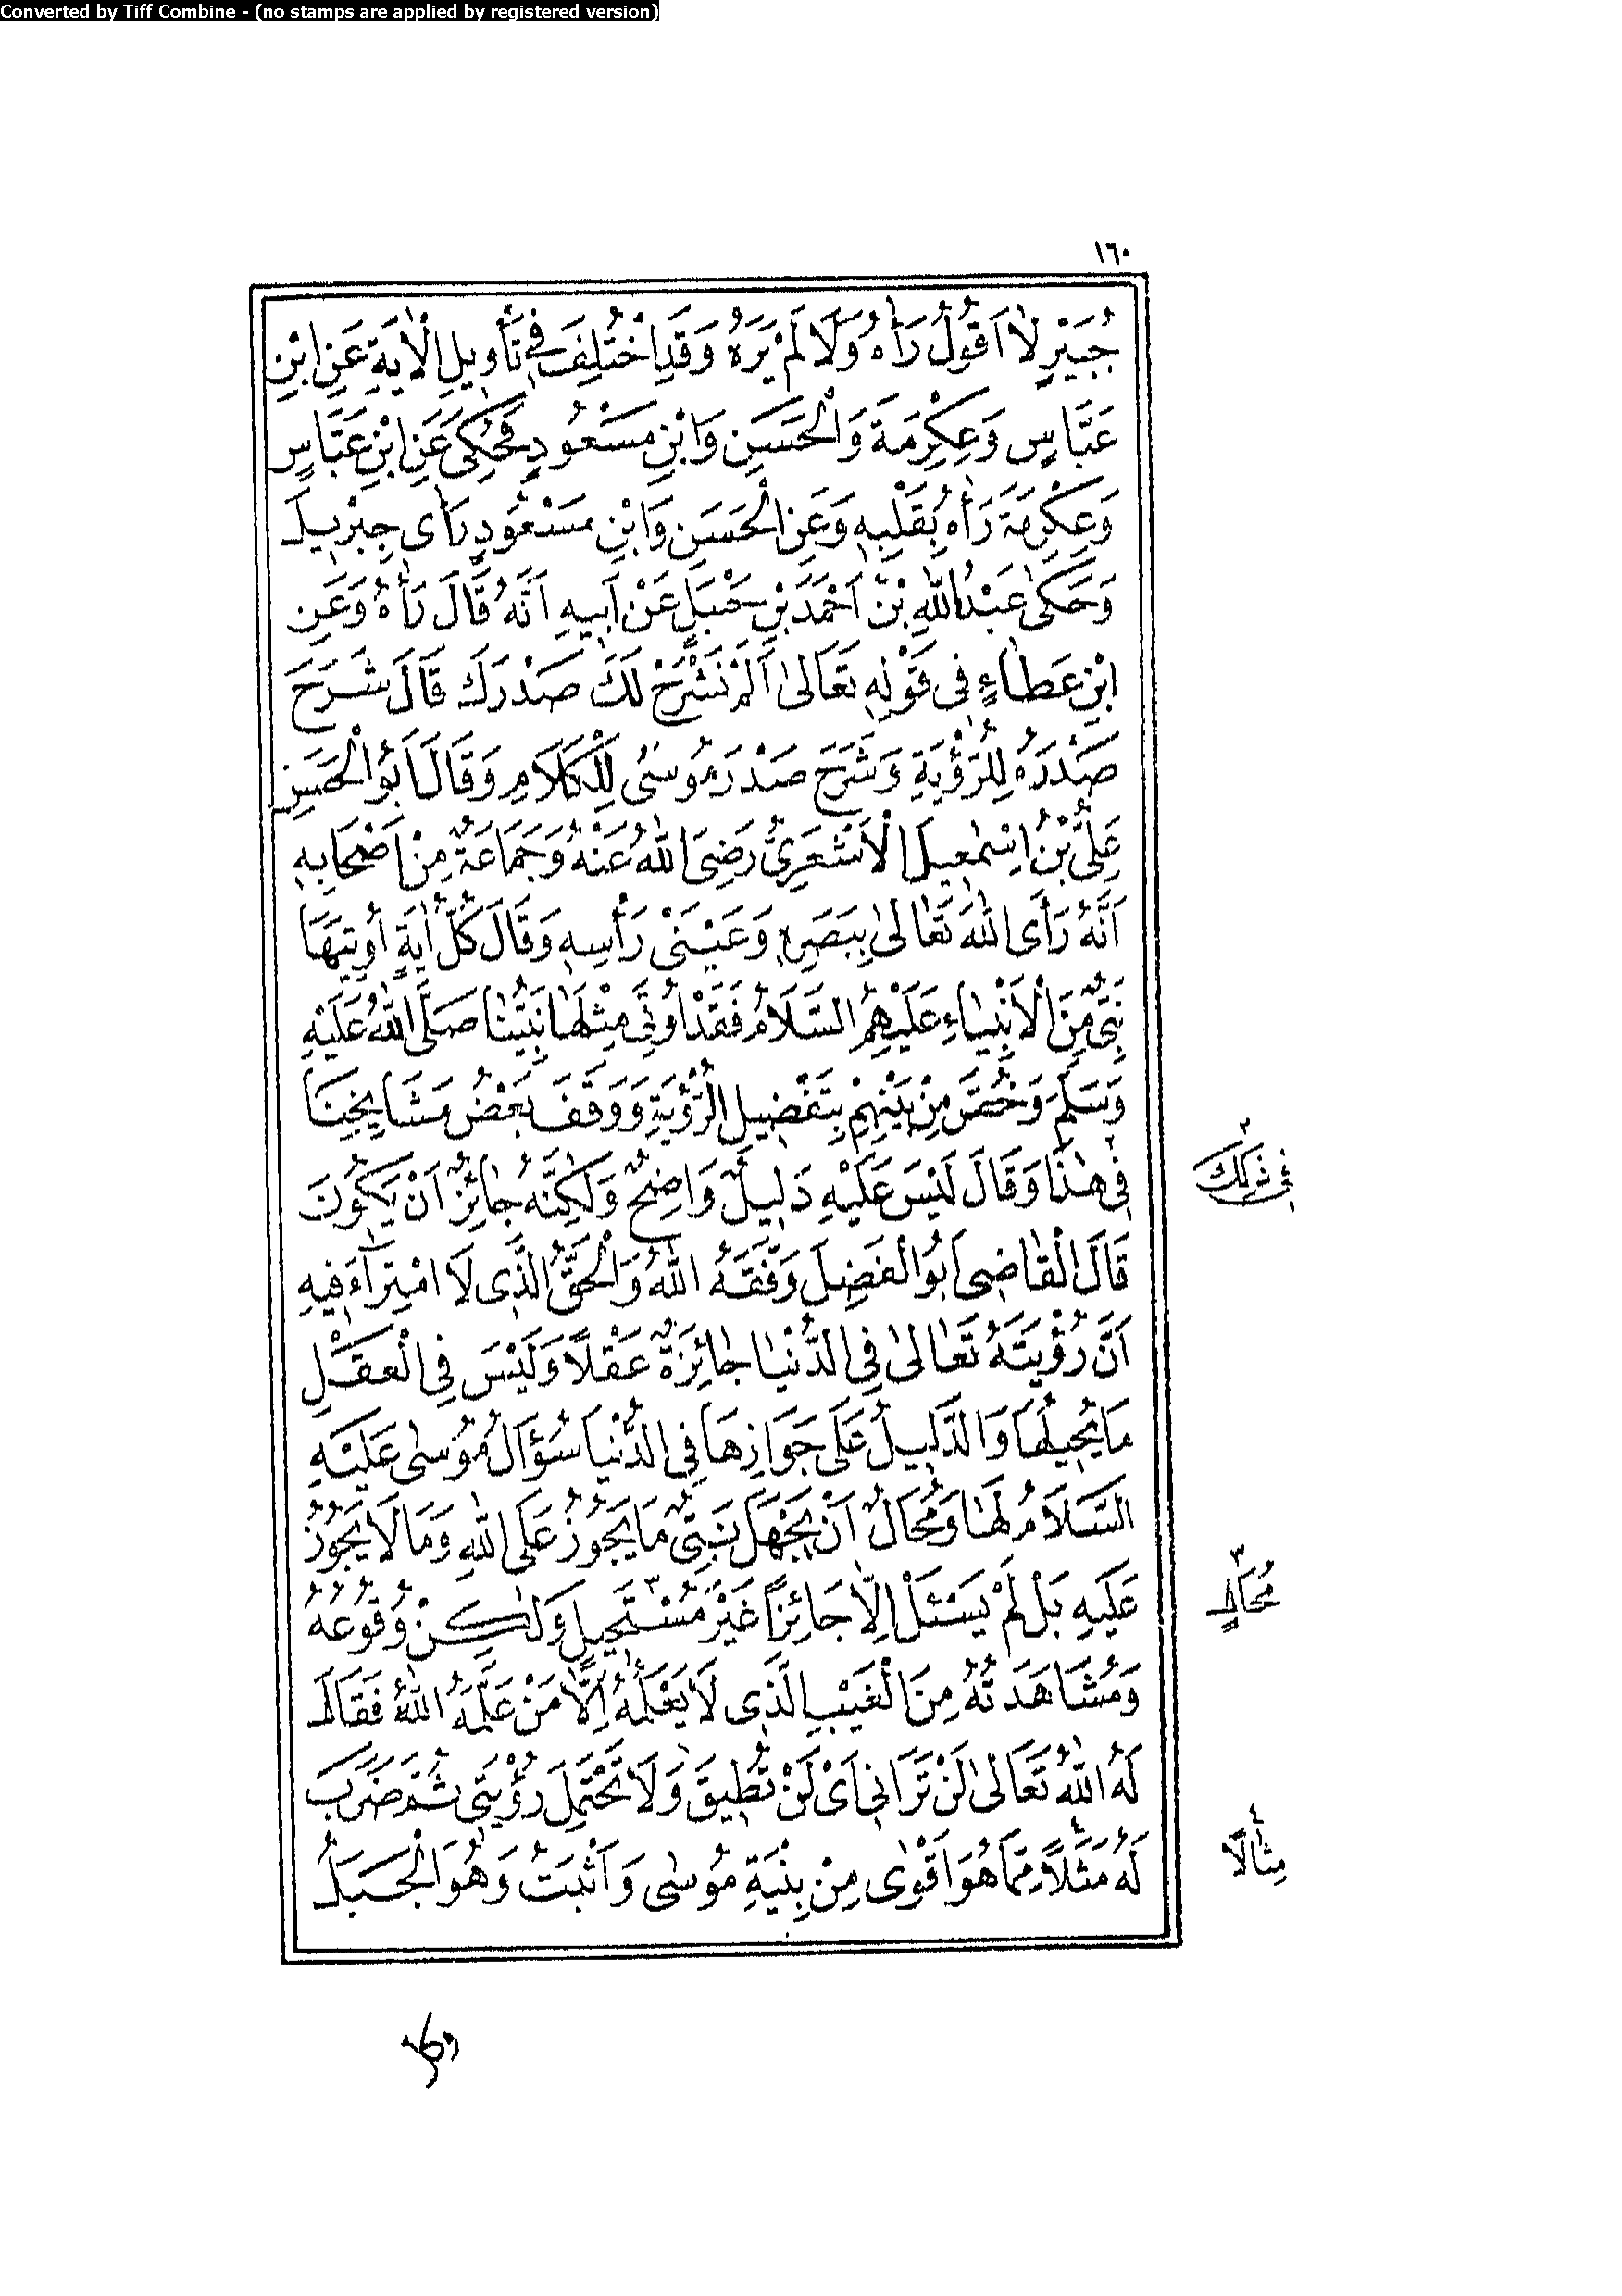 Converted by Tiff Combine - (no stamps are applied by registered version)
١٦٠
جُبَيْرٍ لَا اَقُولُ رَأٰهُ وَلَا لَمْ يَرَهُ وَقَدِ اخْتُلِفَ فِي تَأْوِيلِ الْاٰيَةِ عَنِ ابْنِ
عَبَّاسٍ وَعِكْرِمَةَ وَالْحَسَنِ وَابْنِ مَسْعُودٍ فَحُكِيَ عَنِ ابْنِ عَبَّاسٍ
وَعِكْرِمَةَ رَأٰهُ بِقَلْبِهِ وَعَنِ الْحَسَنِ وَابْنِ مَسْعُودٍ رَأٰى جِبْرِيلَ
وَحَكٰى عَبْدُ اللّٰهِ بْنُ اَحْمَدَ بْنِ حَنْبَلٍ عَنْ اَبِيهِ اَنَّهُ قَالَ رَأٰهُ وَعَنِ
ابْنِ عَطَاءٍ فِي قَوْلِهِ تَعَالٰى اَلَمْ نَشْرَحْ لَكَ صَدْرَكَ قَالَ شَرَحَ
صَدْرَهُ لِلرُّؤْيَةِ وَشَرَحَ صَدْرَ مُوسٰى لِلْكَلَامِ وَقَالَ اَبُو الْحَسَنِ
عَلِيُّ بْنُ اِسْمٰعِيلَ الْاَشْعَرِيُّ رَضِيَ اللّٰهُ عَنْهُ وَجَمَاعَةٌ مِنْ اَصْحَابِهِ
اَنَّهُ رَأَى اللّٰهَ تَعَالٰى بِبَصَرِهِ وَعَيْنَيْ رَأْسِهِ وَقَالَ كُلُّ اٰيَةٍ اُوتِيَهَا
نَبِيٌّ مِنَ الْاَنْبِيَاءِ عَلَيْهِمُ السَّلَامُ فَقَدْ اُوتِيَ مِثْلَهَا نَبِيُّنَا صَلَّى اللّٰهُ عَلَيْهِ
وَسَلَّمَ وَخُصَّ مِنْ بَيْنِهِمْ بِتَفْضِيلِ الرُّؤْيَةِ وَوَقَفَ بَعْضُ مَشَايِخِنَا
فِي هٰذَا وَقَالَ لَيْسَ عَلَيْهِ دَلِيلٌ وَاضِحٌ وَلٰكِنَّهُ جَائِزٌ اَنْ يَكُونَ
٢ في ذلك
قَالَ الْقَاضِي اَبُو الْفَضْلِ وَفَّقَهُ اللّٰهُ وَالْحَقُّ الَّذِي لَا امْتِرَاءَ فِيهِ
اَنَّ رُؤْيَتَهُ تَعَالٰى فِي الدُّنْيَا جَائِزَةٌ عَقْلًا وَلَيْسَ فِي الْعَقْلِ
مَا يُحِيلُهَا وَالدَّلِيلُ عَلَى جَوَازِهَا فِي الدُّنْيَا سُؤَالُ مُوسٰى عَلَيْهِ
السَّلَامُ لَهَا وَمُحَالٌ اَنْ يَجْهَلَ نَبِيٌّ مَا يَجُوزُ عَلَى اللّٰهِ وَمَا لَا يَجُوزُ
عَلَيْهِ بَلْ لَمْ يَسْئَلْ اِلَّا جَائِزًا غَيْرَ مُسْتَحِيلٍ وَلٰكِنْ وُقُوعُهُ
٣ مُحَالٍ
وَمُشَاهَدَتُهُ مِنَ الْغَيْبِ الَّذِي لَا يَعْلَمُهُ اِلَّا مَنْ عَلَّمَهُ اللّٰهُ فَقَالَ
لَهُ اللّٰهُ تَعَالٰى لَنْ تَرَانِي اَيْ لَنْ تُطِيقَ وَلَا تَحْتَمِلَ رُؤْيَتِي ثُمَّ ضَرَبَ
لَهُ مَثَلًا مِمَّا هُوَ اَقْوٰى مِنْ بِنْيَةِ مُوسٰى وَاَثْبَتُ وَهُوَ الْجَبَلُ
٤ مِثَالًا